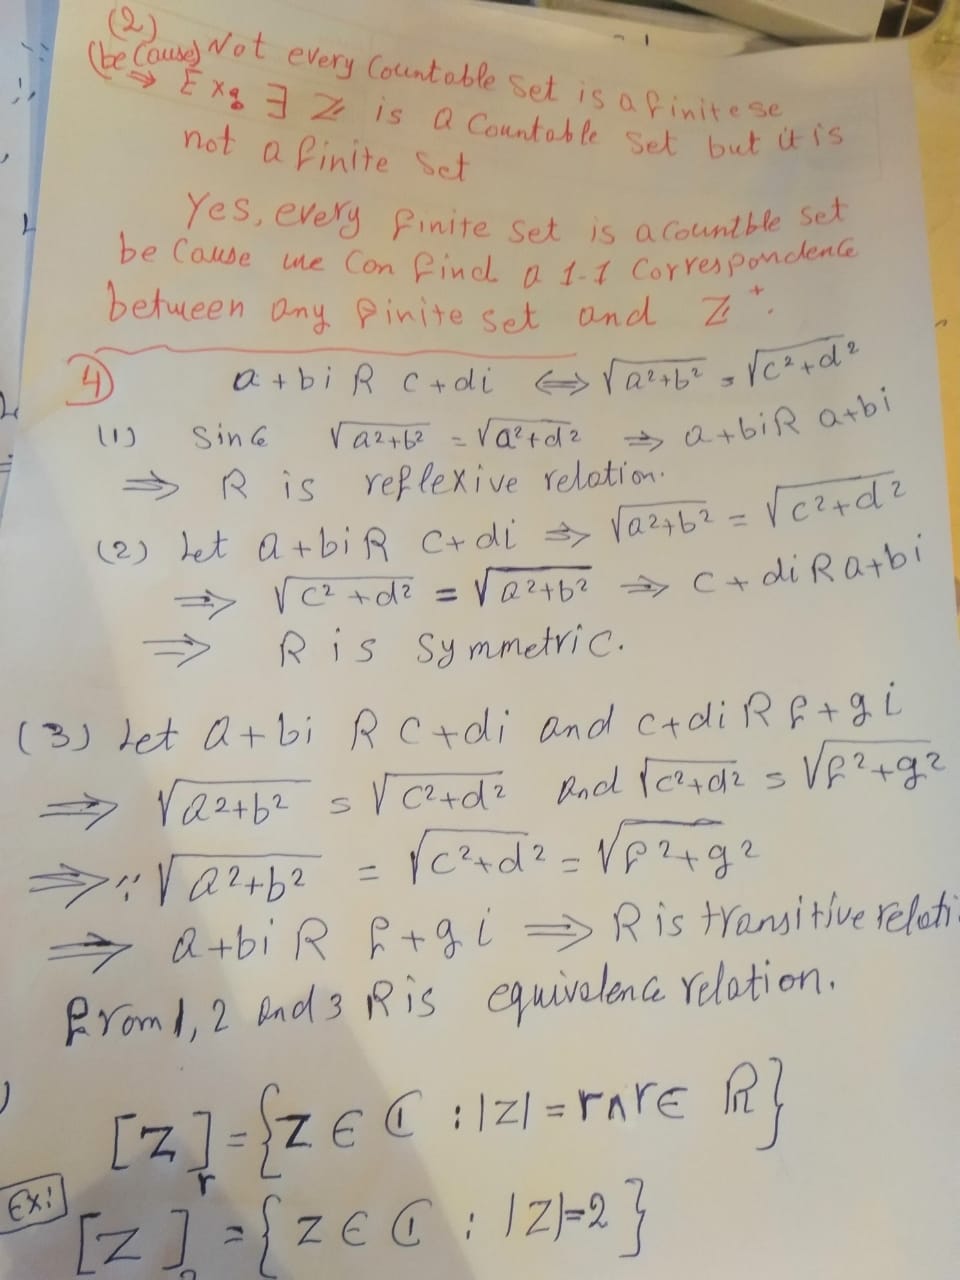 (2)
(be Cause) Not every Countable Set is a finite se
⇒ Ex: ∃ ℤ is a Countable Set but it is
not a finite Set
Yes, every finite Set is a Countble Set
be Cause we Can find a 1-1 Correspondence
between any finite set and ℤ⁺.
④ a+bi R c+di ⟺ √a²+b² = √c²+d²
(1) Sinc √a²+b² = √a²+d² ⇒ a+bi R a+bi
⇒ R is reflexive relation.
(2) Let a+bi R c+di ⇒ √a²+b² = √c²+d²
⇒ √c²+d² = √a²+b² ⇒ c+di R a+bi
⇒ R is Symmetric.
(3) Let a+bi R c+di and c+di R f+gi
⇒ √a²+b² = √c²+d² and √c²+d² = √f²+g²
⇒ ∵ √a²+b² = √c²+d² = √f²+g²
⇒ a+bi R f+gi ⇒ R is transitive relati
From 1, 2 and 3 R is equivalence relation.
[Z]r = {Z ∈ ℂ : |Z| = r ∧ r ∈ ℝ}
Ex:
[Z] = {Z ∈ ℂ : |Z|=2}